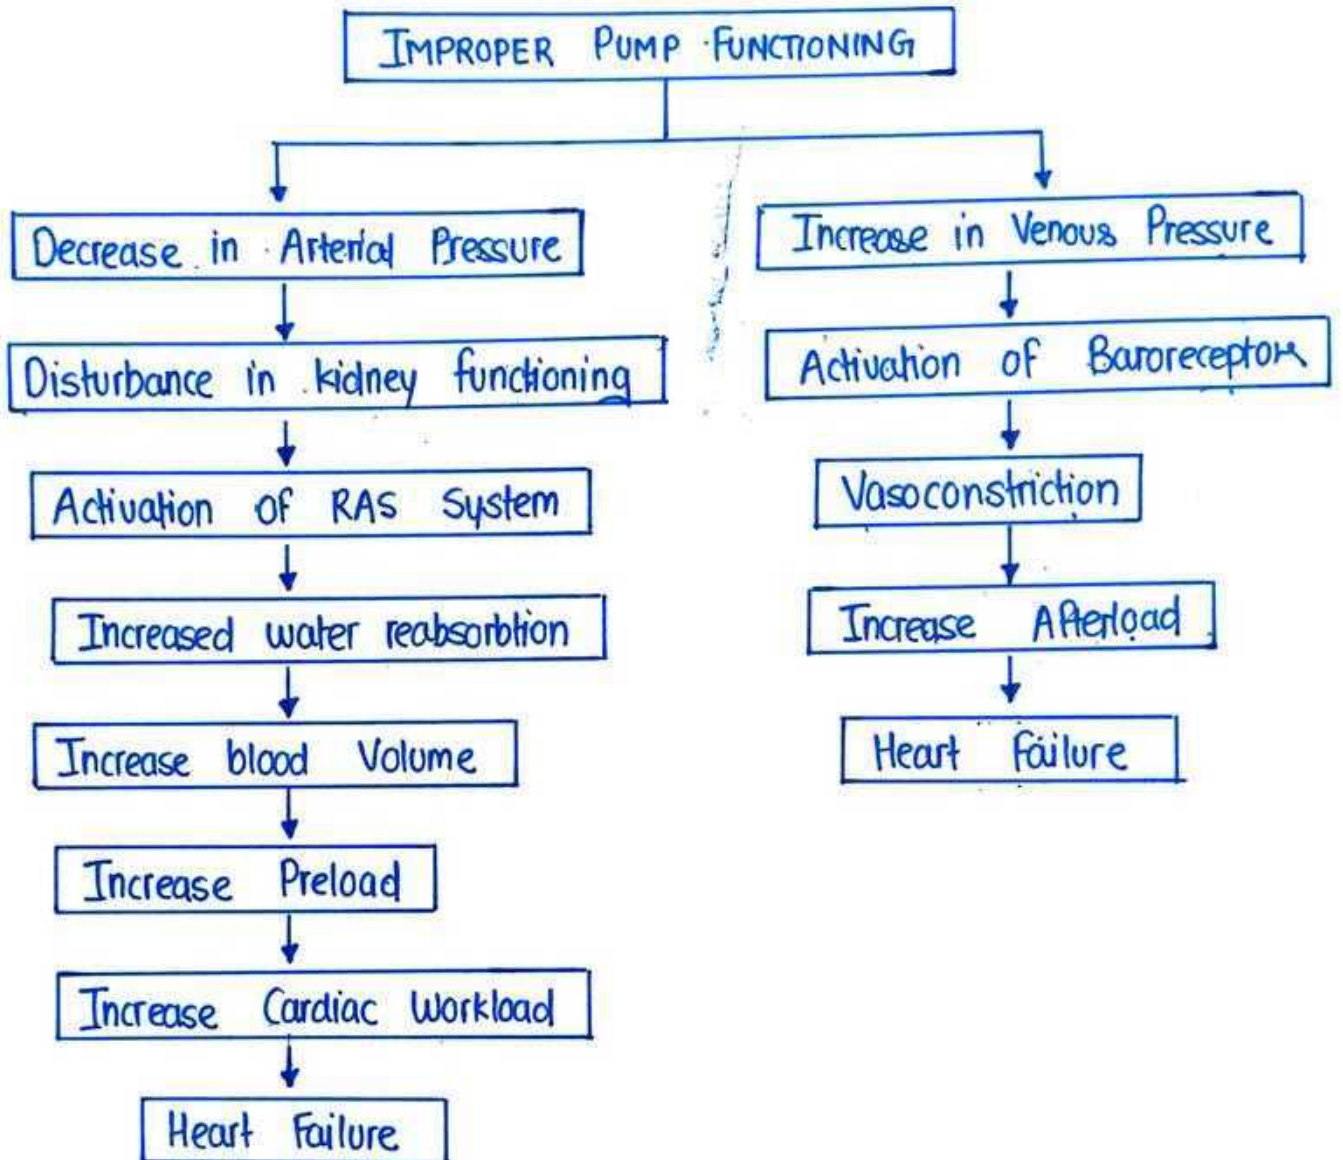 IMPROPER PUMP FUNCTIONING
Decrease in Arterial Pressure
Disturbance in kidney functioning
Activation of RAS System
Increased water reabsorbtion
Increase blood Volume
Increase Preload
Increase Cardiac Workload
Heart Failure
Increase in Venous Pressure
Activation of Baroreceptors
Vasoconstriction
Increase Afterload
Heart Failure